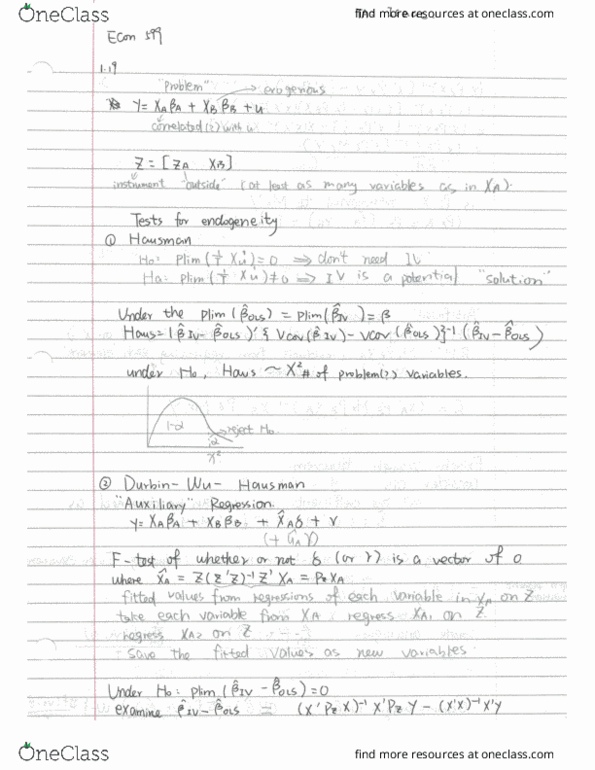 OneClass
find more resources at oneclass.com
Econ 399
1.19
"Problem"
exogenous
Y = XAβA + XBβB + u
correlated(?) with u
Z = [ZA XB]
instrument "outside" (at least as many variables as in XA).
Tests for endogeneity
① Hausman
Ho: Plim (1/T X'u) = 0 ⇒ don't need IV
Ha: Plim (1/T X'u) ≠ 0 ⇒ IV is a potential "solution"
Under the plim (β̂OLS) = plim(β̂IV) = β
Haus = (β̂IV - β̂OLS)' { Vcov(β̂IV) - Vcov(β̂OLS)}⁻¹ (β̂IV - β̂OLS)
under Ho, Haus ~ X² # of problem(?) variables.
1-α
reject Ho
α
X²
② Durbin-Wu-Hausman
"Auxiliary" Regression
y = XAβA + XBβB + X̂Aδ + v
(+ ÛAγ)
F-test of whether or not δ (or γ) is a vector of 0
where X̂A = Z(Z'Z)⁻¹Z'XA = PzXA
fitted values from regressions of each variable in XA on Z
take each variable from XA, regress XA1 on Z
regress XA2 on Z
- Save the fitted values as new variables.
Under Ho: plim (β̂IV - β̂OLS) = 0
examine β̂IV - β̂OLS = (X'PzX)⁻¹X'PzY - (X'X)⁻¹X'Y
OneClass
find more resources at oneclass.com